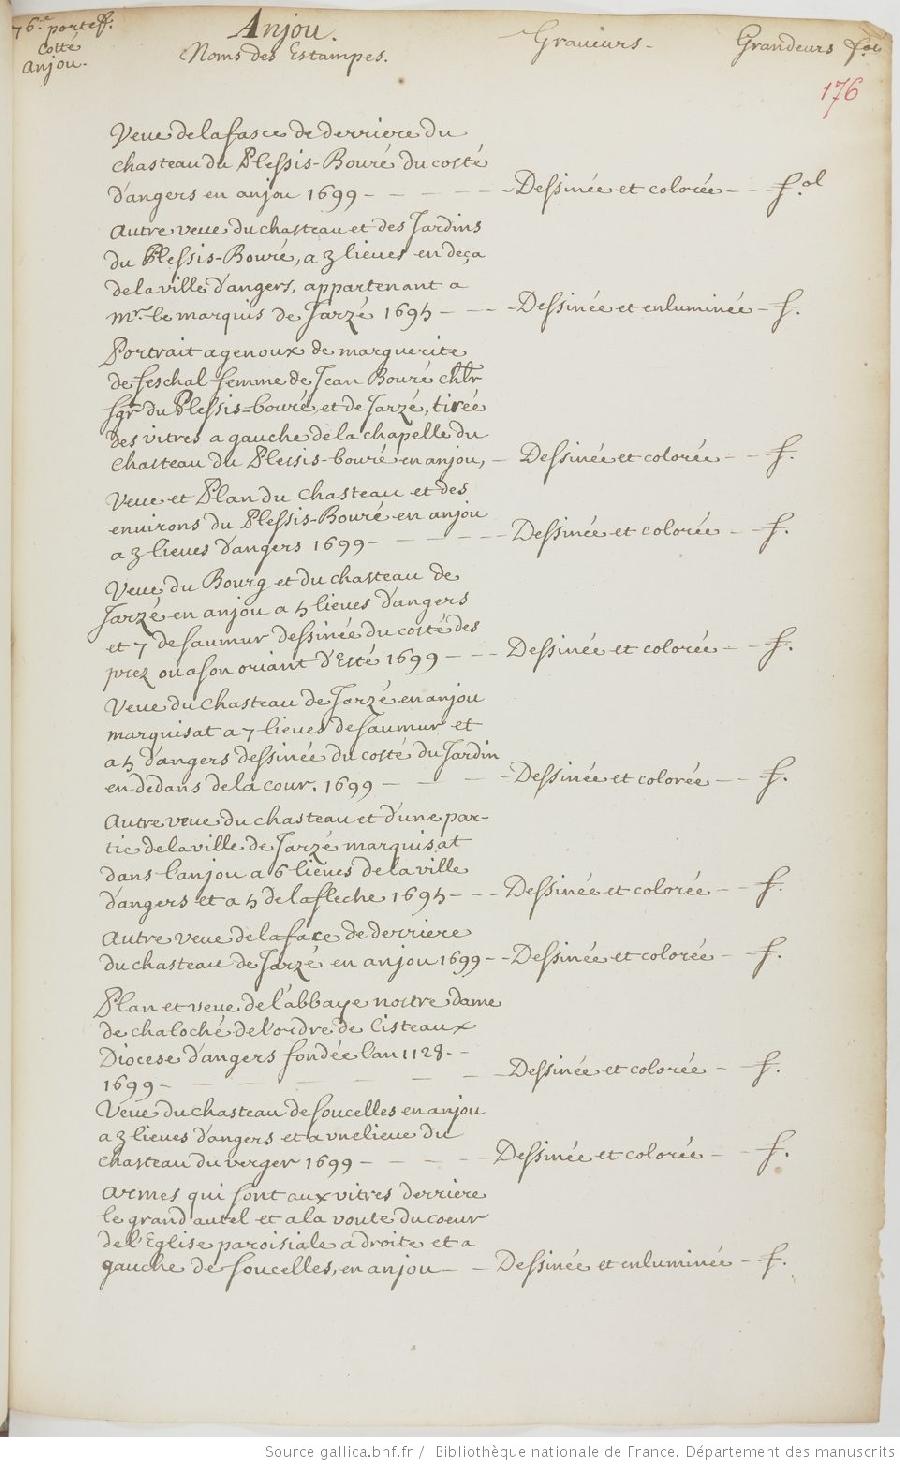 76.e portef.
cotté
anjou.
Anjou.
Noms des Estampes.
Graveurs.
Grandeurs fol
176
Veue de la fasce de derriere du
chasteau du Plessis-Bouré du costé
d'angers en anjou 1699 - - - - - Dessinée et colorée - - f.ol
autre veue du chasteau et des Jardins
du Plessis-Bouré, a 3 lieues en deça
de la ville d'angers, appartenant a
mr. le marquis de Jarzé 1695 - - - Dessinée et enluminée - f.
Portrait a genoux de marguerite
de feschal femme de Jean Bouré chlr
sgr du Plessis-bouré et de Jarzé, tirée
des vitres a gauche de la chapelle du
chasteau du Plessis-bouré en anjou, - Dessinée et colorée - - f.
Veue et Plan du chasteau et des
environs du Plessis-Bouré en anjou
a 3 lieues d'angers 1699 - - - - - Dessinée et colorée - - f.
Veue du Bourg et du chasteau de
Jarzé en anjou a 5 lieues d'angers
et 7 de saumur dessinée du costé des
prez ou a son oriant d'Esté 1699 - - - Dessinée et colorée - - f.
Veue du chasteau de Jarzé en anjou
marquisat a 7 lieues de saumur et
a 5 d'angers dessinée du costé du Jardin
en dedans de la cour. 1699 - - - - Dessinée et colorée - - f.
Autre veue du chasteau et d'une par-
tie de la ville de Jarzé marquisat
dans l'anjou a 6 lieues de la ville
d'angers et a 5 de la fleche 1695 - - - Dessinée et colorée - - f.
autre veue de la face de derriere
du chasteau de Jarzé en anjou 1699 - - Dessinée et colorée - f.
Plan et veue de l'abbaye nostre dame
de chaloché de l'ordre de Cisteaux
Diocese d'angers fondée l'an 1128 - -
1699 - - - - - - - - Dessinée et colorée - f.
Veue du chasteau de soucelles en anjou
a 3 lieues d'angers et a une lieue du
chasteau du verger 1699 - - - - Dessinée et colorée - f.
armes qui sont aux vitres derriere
le grand autel et a la voute du coeur
de l'Eglise paroisiale a droite et a
gauche de soucelles, en anjou - - Dessinée et enluminée - f.
Source gallica.bnf.fr / Bibliothèque nationale de France. Département des manuscrits